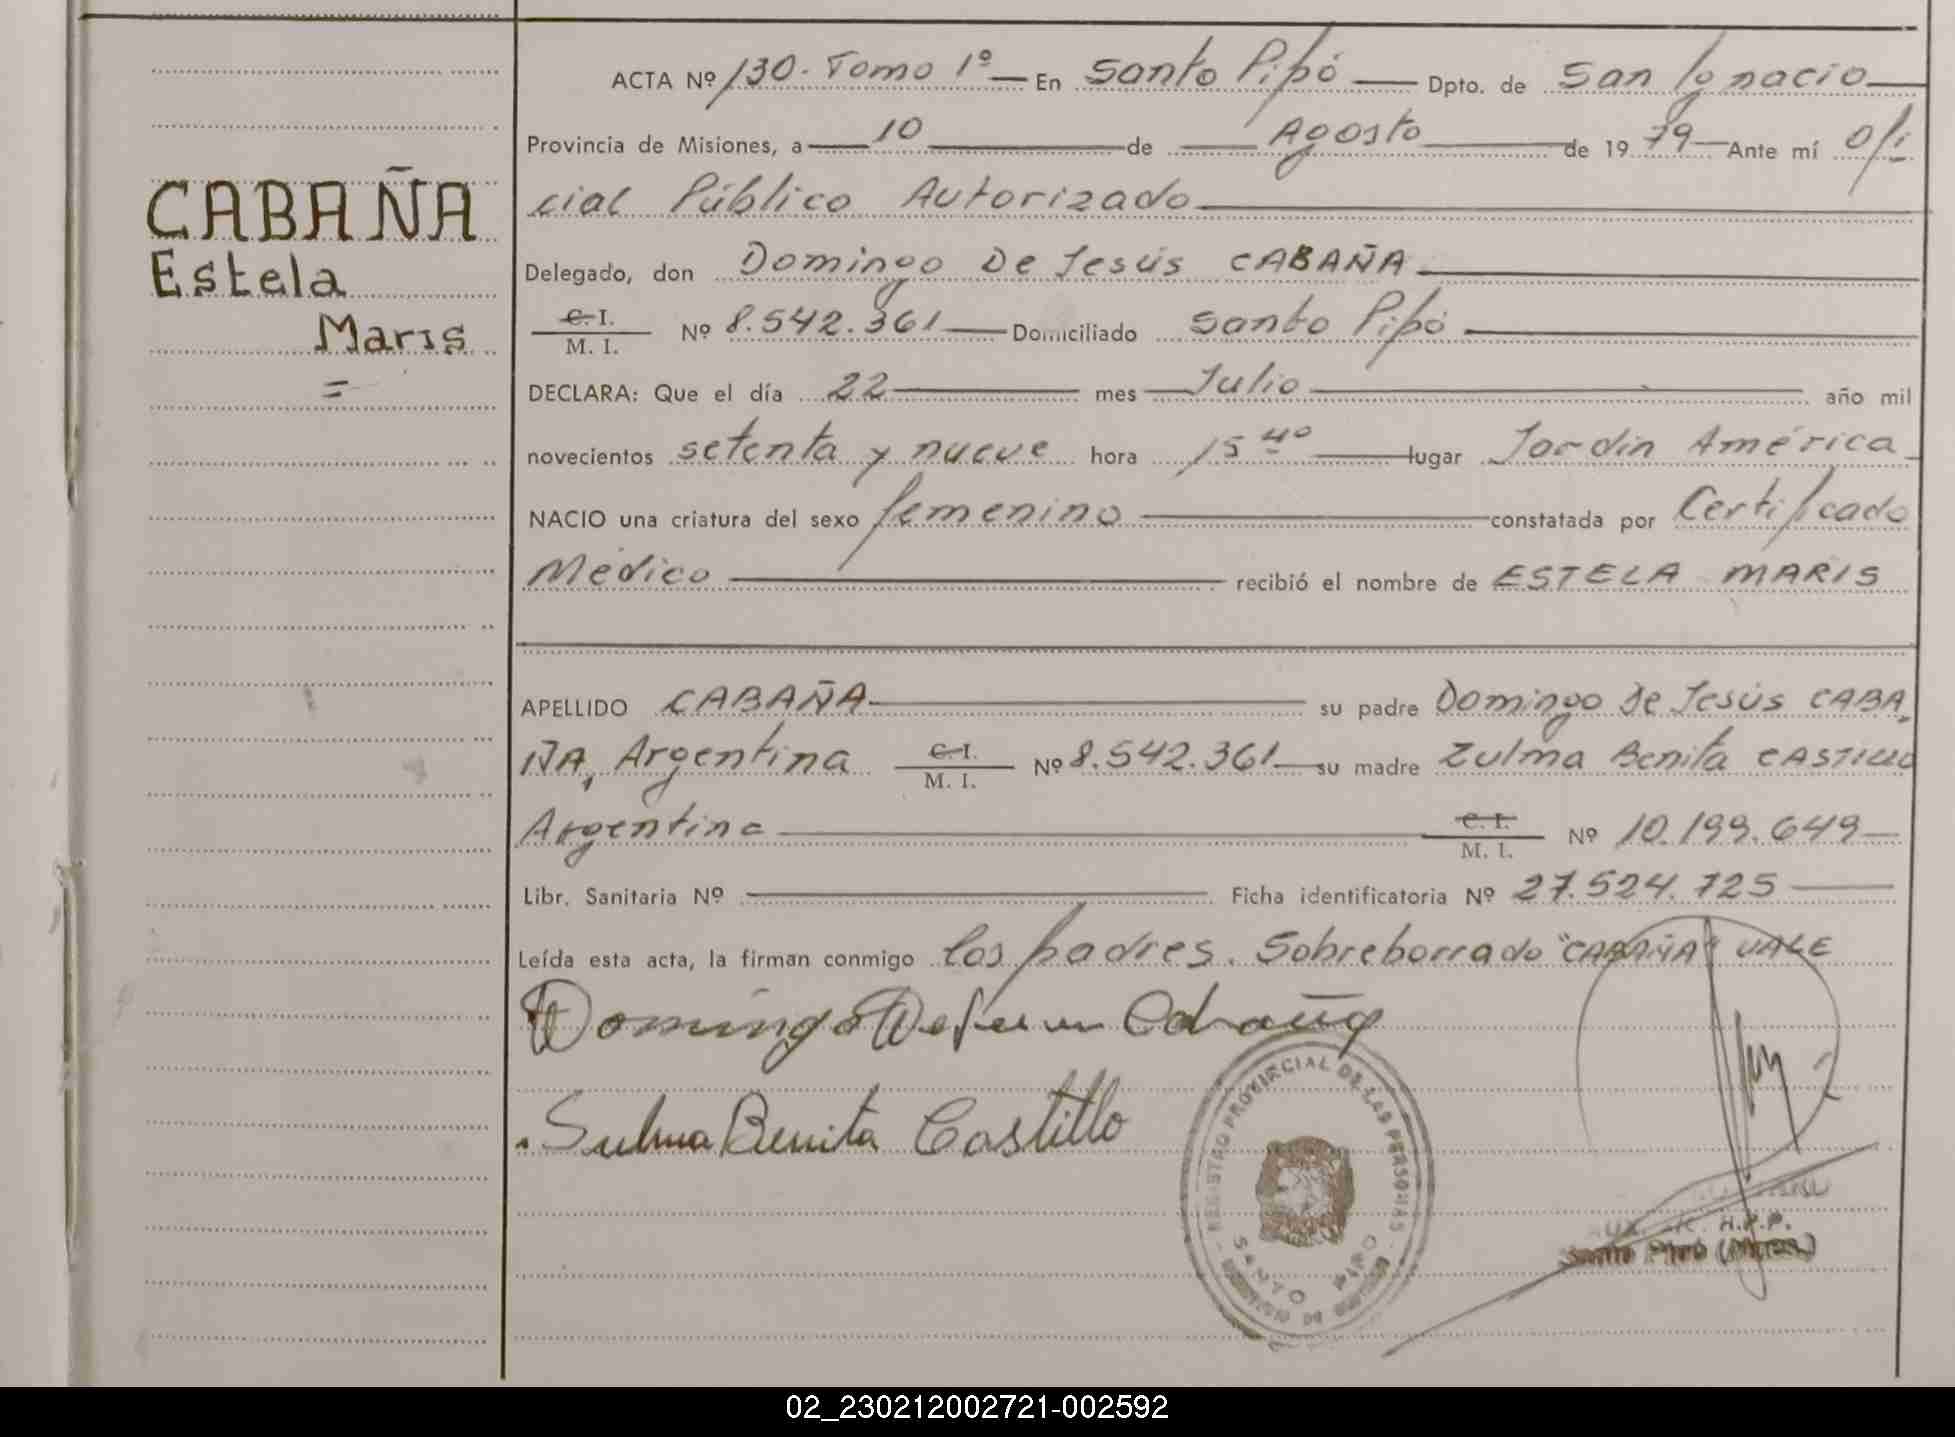 CABAÑA
Estela
Maris
=
ACTA Nº 130. Tomo 1º En Santo Pipó Dpto. de San Ignacio
Provincia de Misiones, a 10 de Agosto de 1979 Ante mí Ofi
cial Público Autorizado
Delegado, don Domingo De Jesús CABAÑA
C. I. / M. I. Nº 8.542.361 Domiciliado Santo Pipó
DECLARA: Que el día 22 mes Julio año mil
novecientos setenta y nueve hora 15 40 lugar Jardín América
NACIO una criatura del sexo femenino constatada por Certificado
Médico recibió el nombre de ESTELA MARIS
APELLIDO CABAÑA su padre Domingo De Jesús CABA
ÑA, Argentina C. I. / M. I. Nº 8.542.361 su madre Zulma Benita CASTILLO
Argentina C. I. / M. I. Nº 10.199.649
Libr. Sanitaria Nº Ficha identificatoria Nº 27.524.725
Leída esta acta, la firman conmigo los padres. Sobreborrado "CABAÑA" VALE
Domingo De Jesus Cabaña
Sulma Benita Castillo
REGISTRO PROVINCIAL DE LAS PERSONAS
SANTO PIPO
R.P.P.
Santo Pipó (Mnes.)
02_230212002721-002592